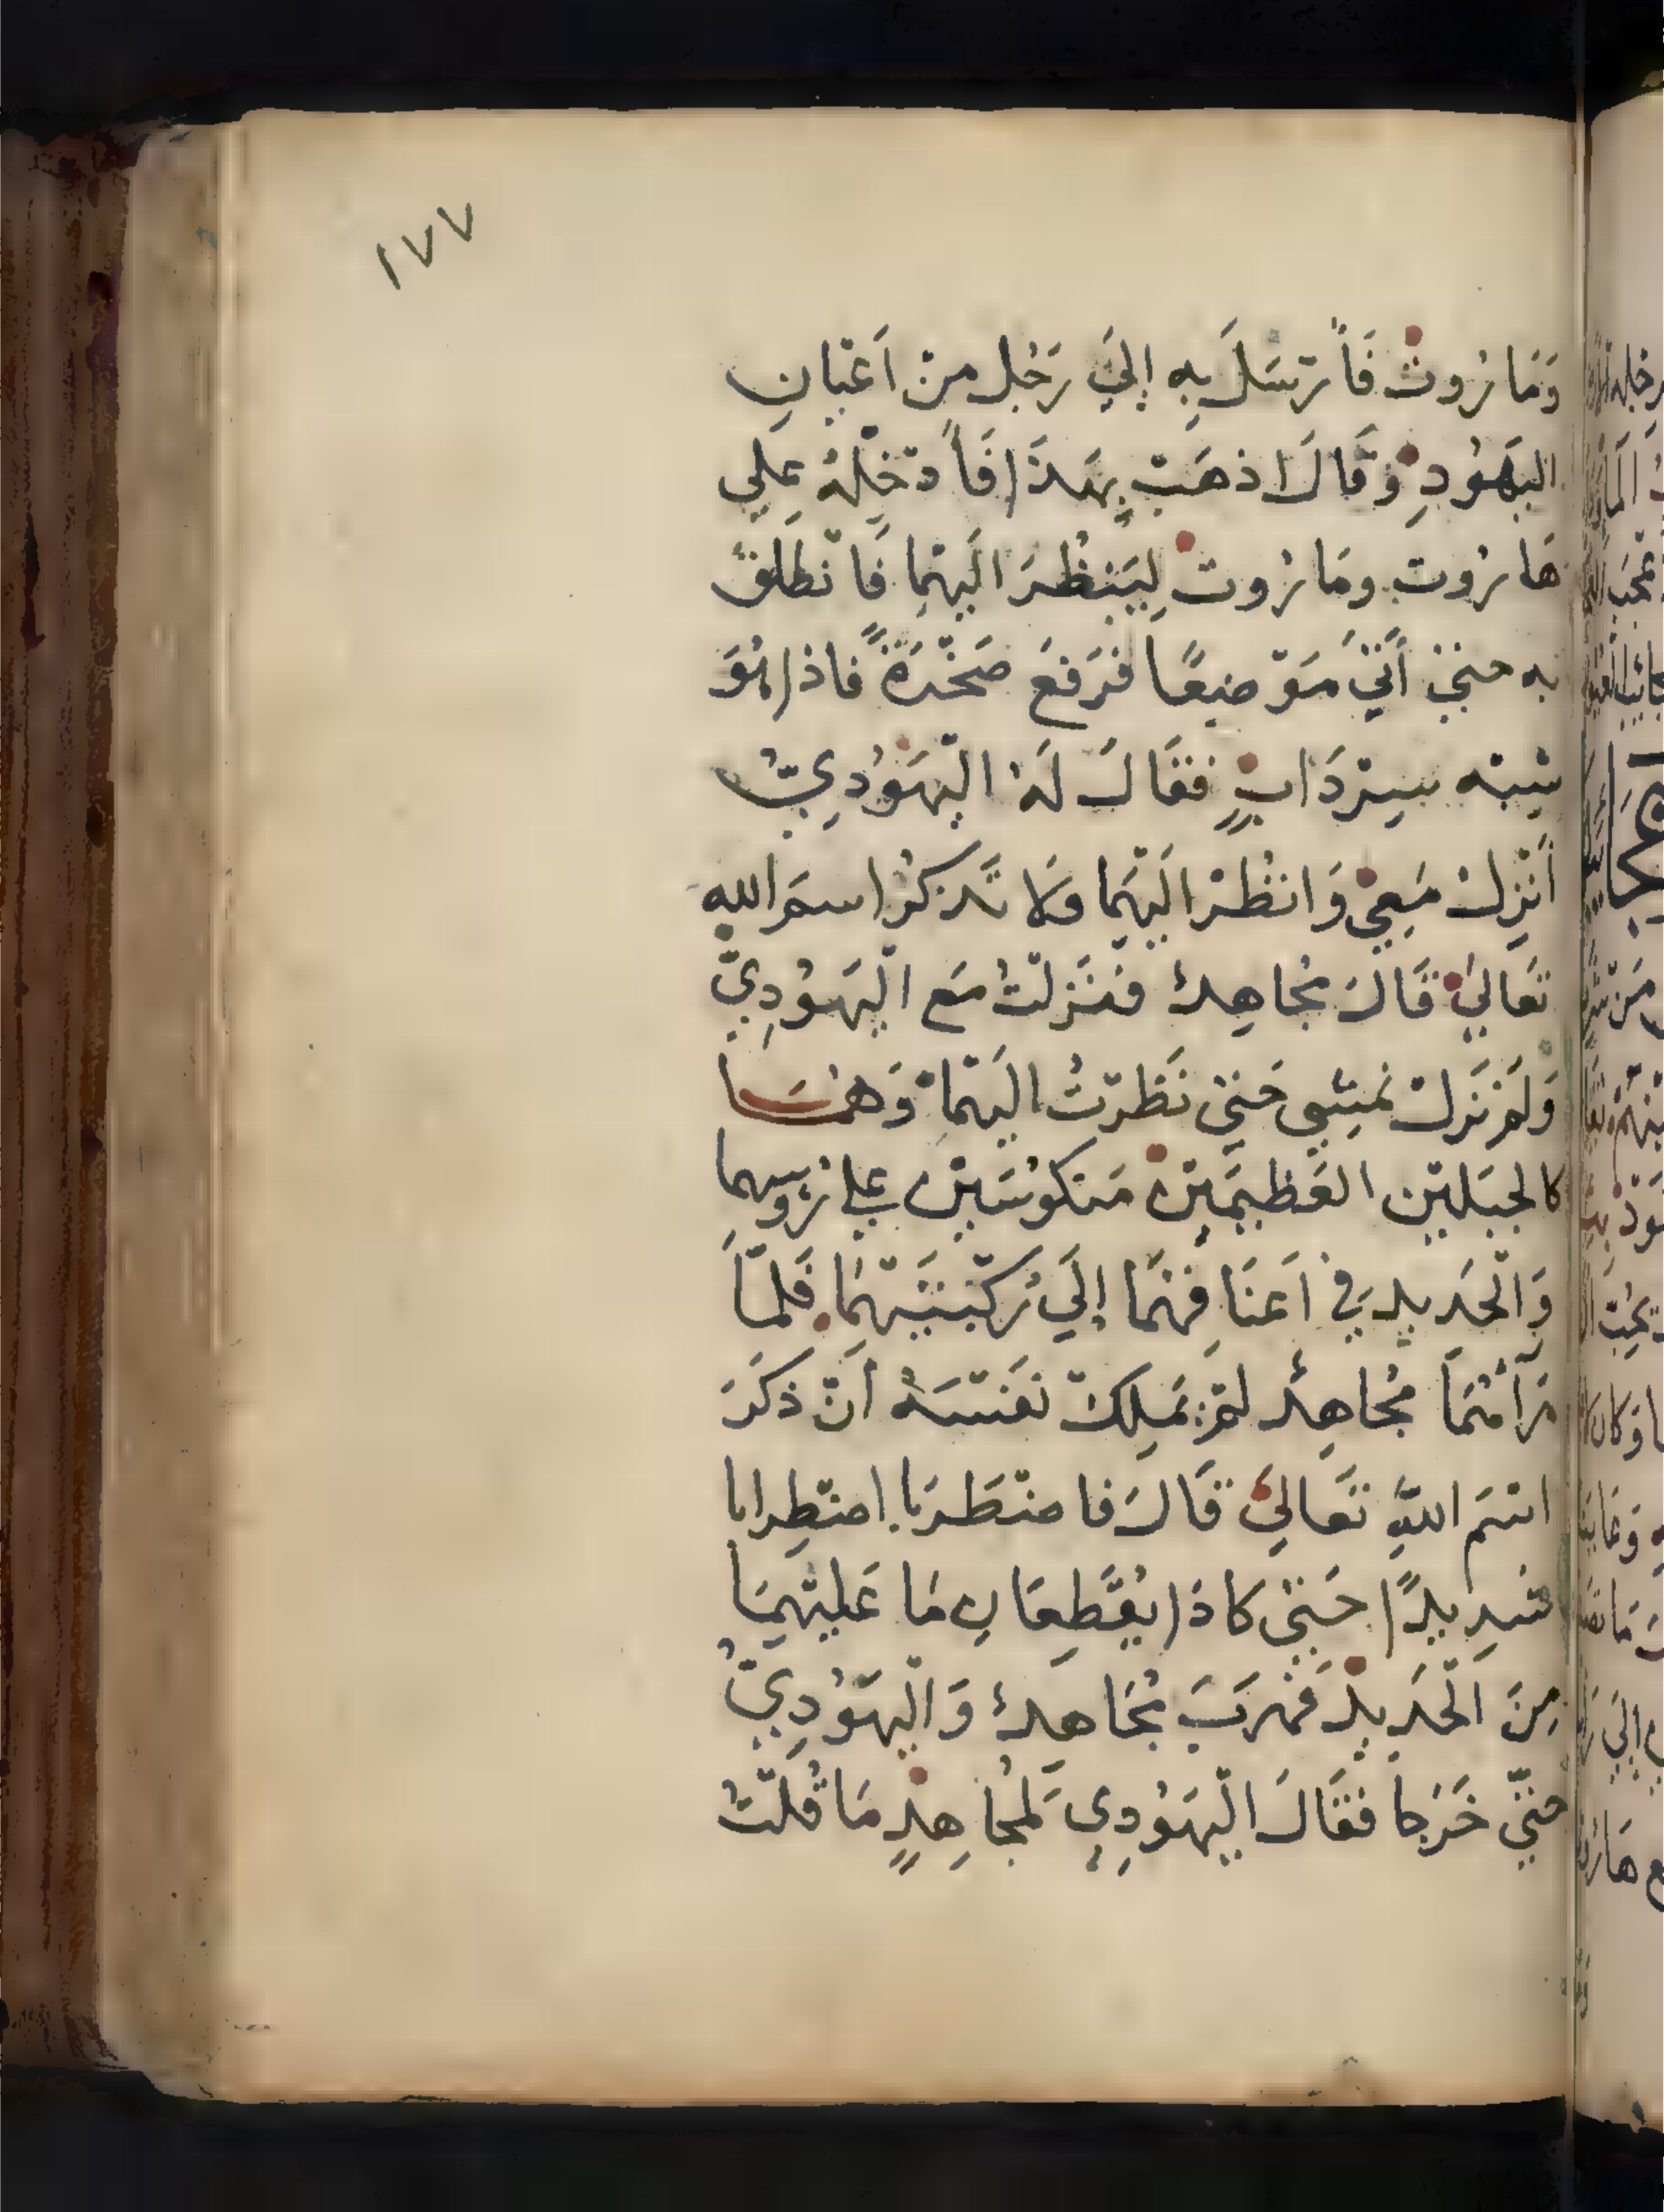 ١٧٧
وَمَارُوتَ فَأَرْسَلَ بِهِ إِلَيَ رَجُلٍ مِنْ اَعْيَانِ
اليَهُودِ وَقَالَ اذهَبْ بِهَذَا فَأَدْخِلْهُ عَلي
هَارُوتَ ومَارُوتَ لِيَنظُرَ الَيهِمَا فَانْطَلَقَ
به حتيّٰ أَتَيَ مَوْضِعًا فَرَفَعَ صَخْرَةً فاذا هُوَ
شبه سِرْدَابٍ فقَالَ لَهُ الْيَهُودِيُّ
أَنْزِلْ مَعِي وَانْظُرْ الَيْهِمَا وَلا تَذكُرُ اسمَ الله
تَعَاليٰ قَالَ مُجَاهِدٌ فَنَزَلْتُ مَع الْيَهُودِيِّ
وَلَمْ نَزَلْ نَمْشِي حَتيّٰ نَظَرْتُ الَيهِمَا وَهُمَا
كالجبَلَيْنِ العَظِيمَيْنِ مَنكُوسَيْنِ عَلي رُؤسِهِما
وَالْحَدِيدِ فيِ اَعنَاقِهِمَا إِلَيَ رُكْبَتَيْهِمَا فَلَمَّا
رَآهُمَا مُجَاهِدٌ لَمْ يَمْلِكْ نَفْسَهُ اَنْ ذَكَرَ
اسْمَ اللهِ تَعَاليٰ قَالَ فاضْطَرَبَا اضْطِرابا
شَدِيدًا حَتيّٰ كادَا يُقَطِّعَانِ مَا عَلَيْهِمَا
مِنَ الْحَدِيدِ فَهَرَبَ مُجَاهِدٌ وَالْيَهُودِيُّ
حتيَّ خَرَجا فقَالَ الْيَهُودِي لمُجَاهِدٍ مَا قُلْتُ